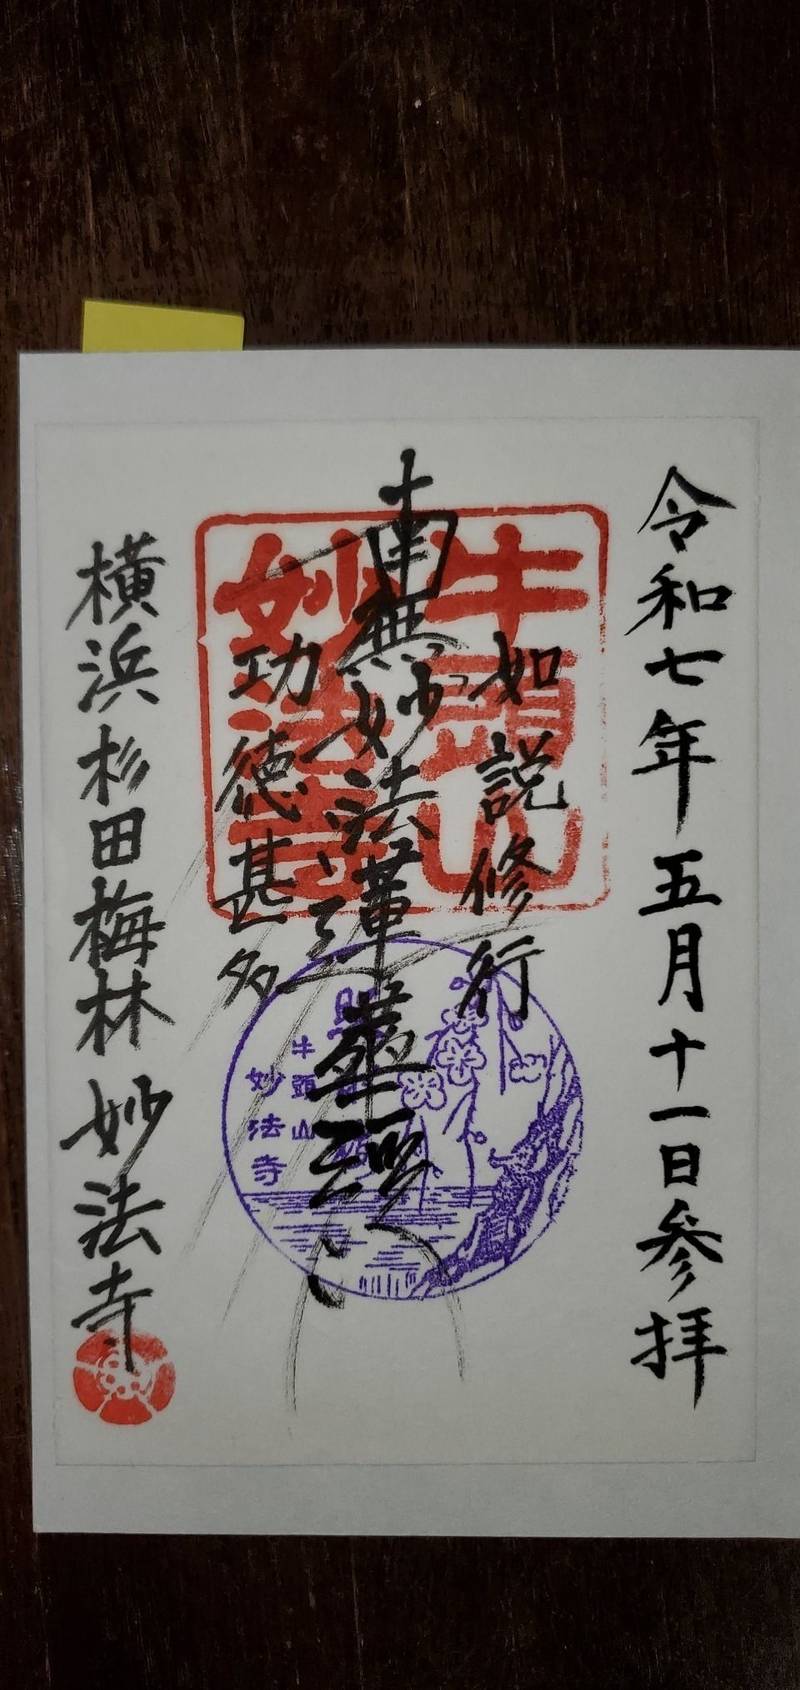 令和七年五月十一日参拝
如説修行
南無妙法蓮華経
功徳甚多
横浜杉田梅林妙法寺
牛頭山
妙法寺
牛頭山
妙法寺